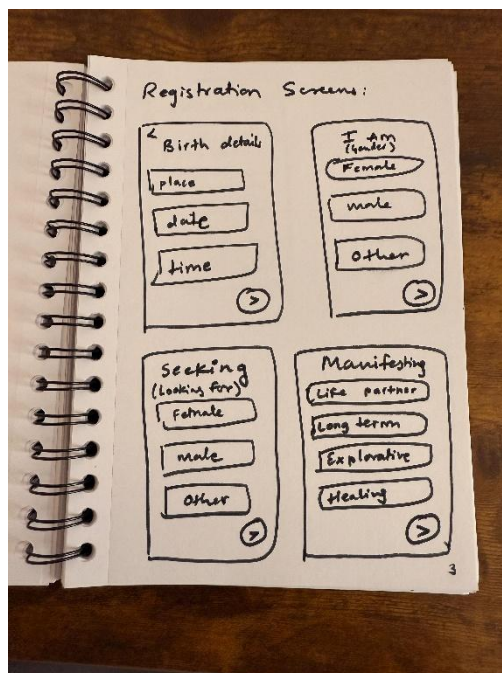 Registration Screens:
< Birth details
place
date
time
>
I Am
(Gender)
Female
male
other
>
Seeking
(Looking for)
Female
male
other
>
Manifesting
Life partner
Long term
Explorative
Healing
>
3